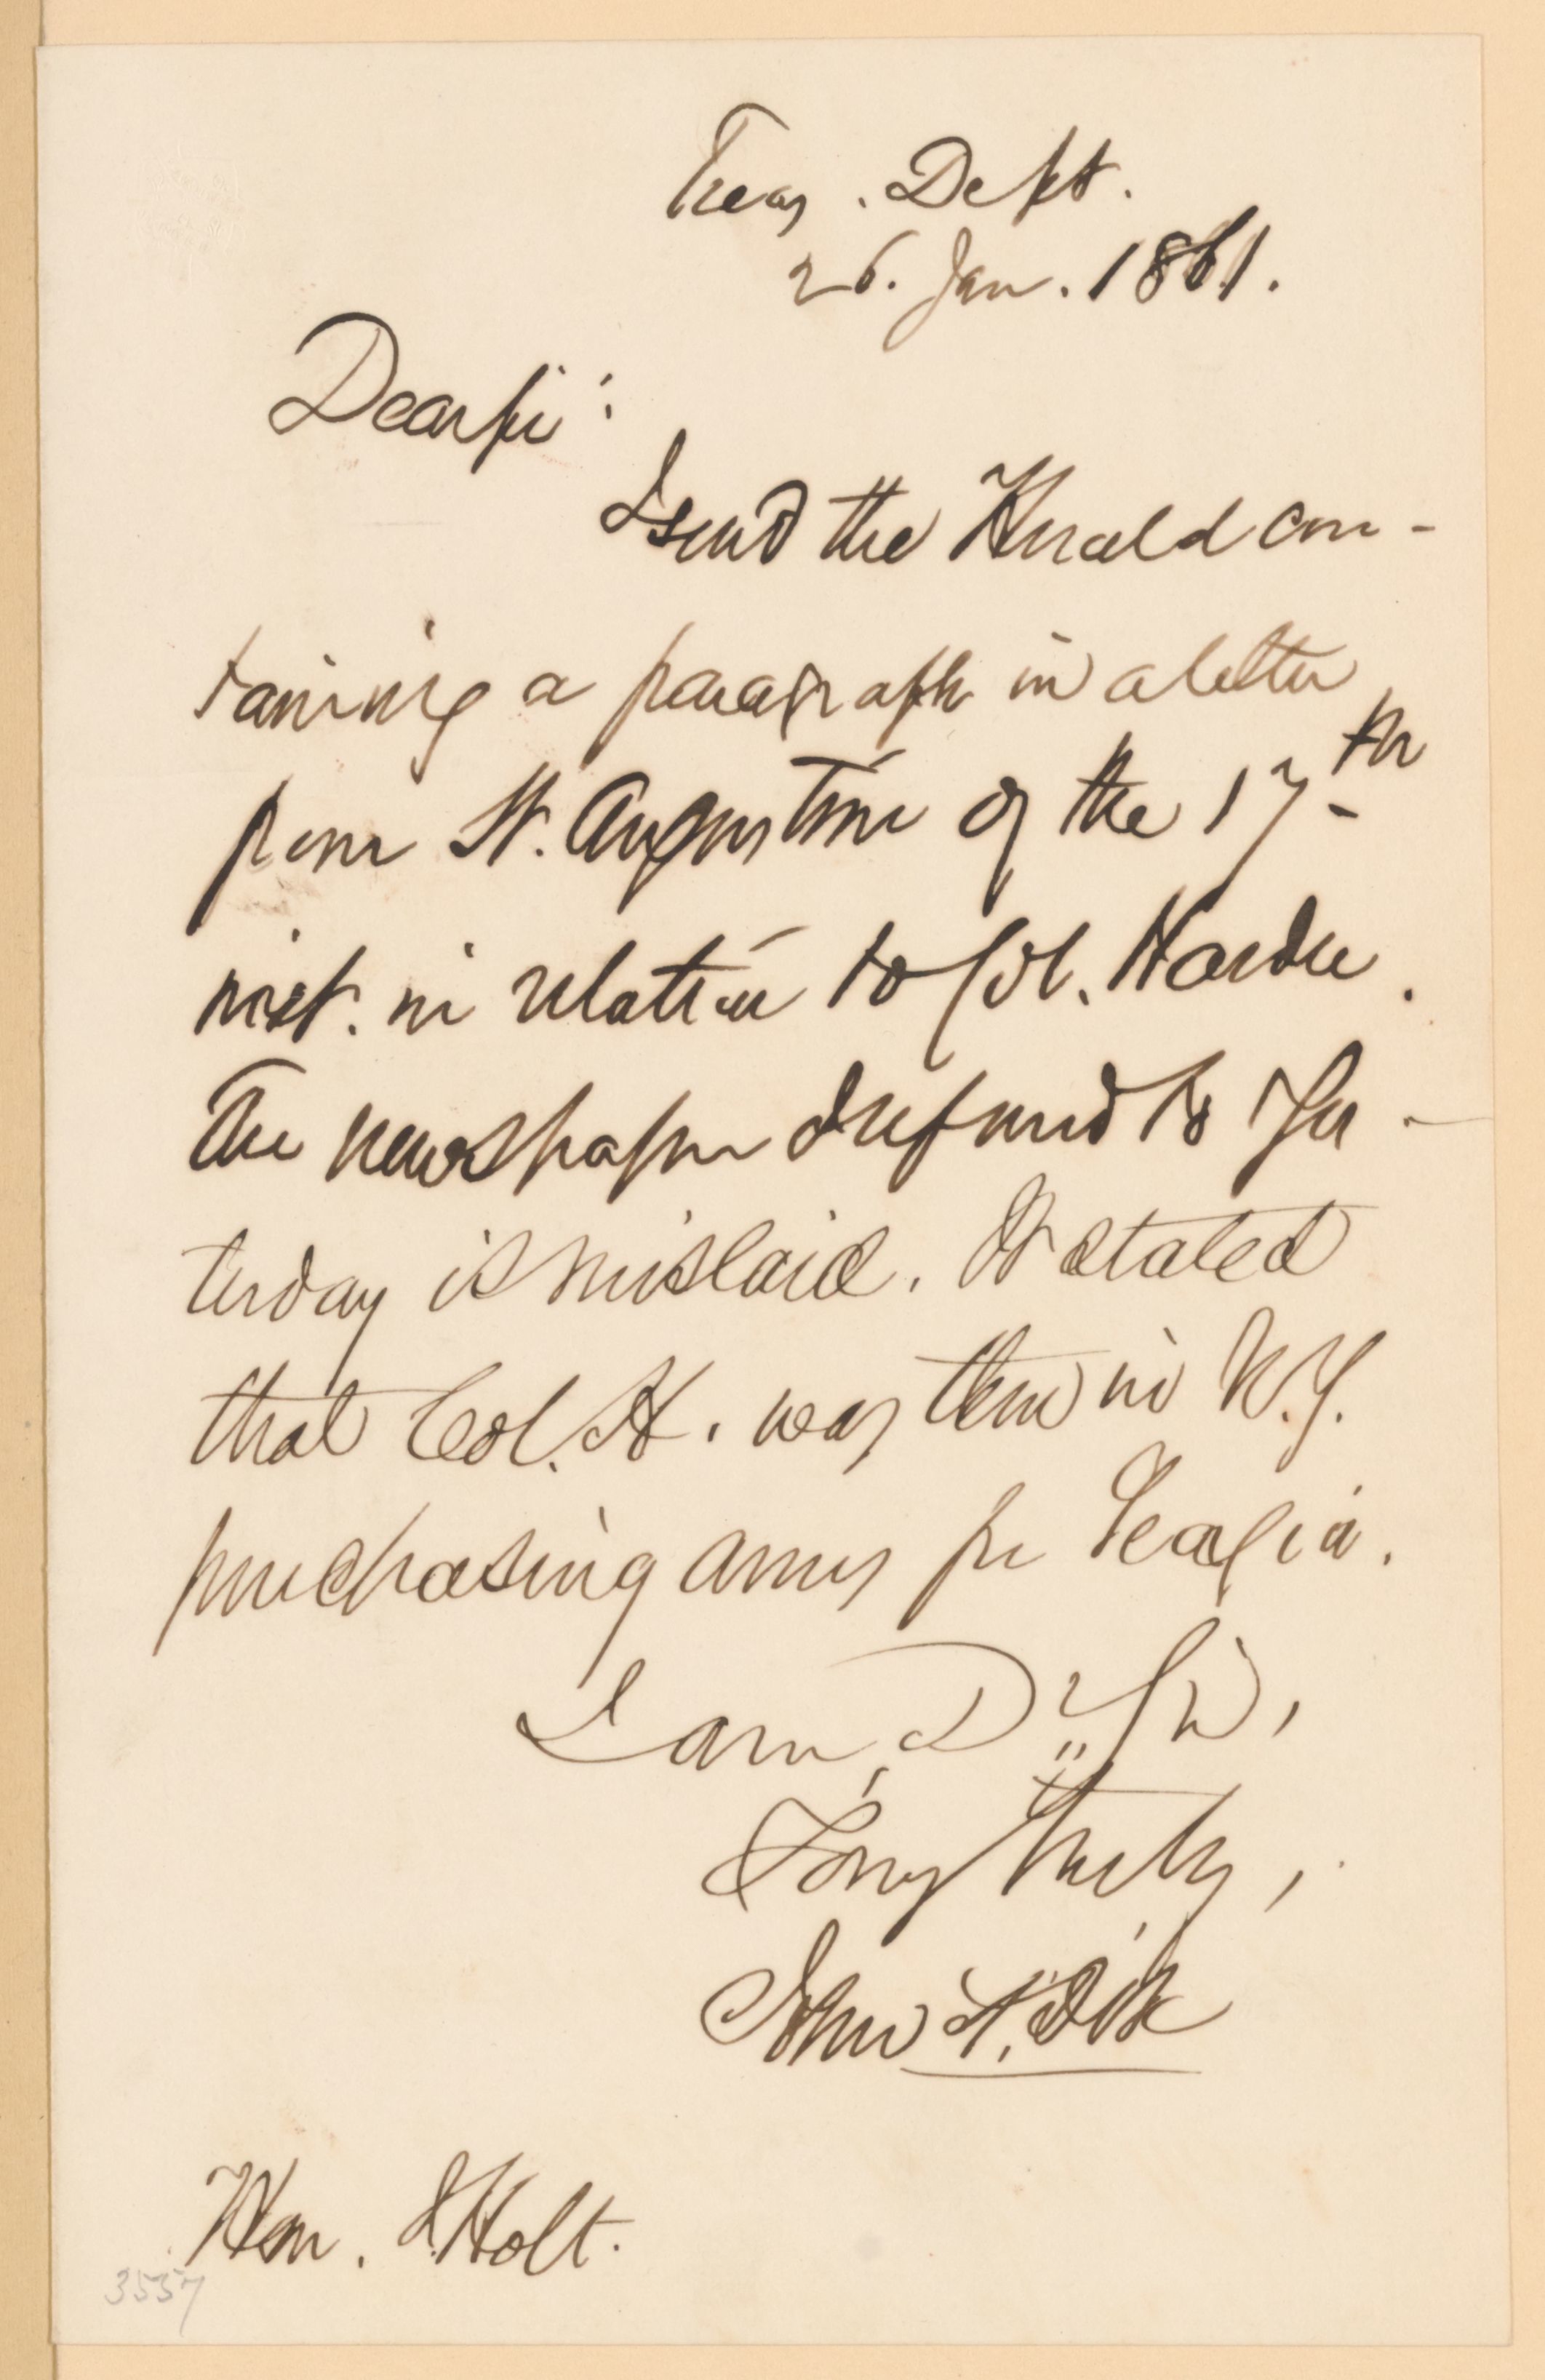 Treas. Dept.
26. Jan. 1861.
Dear Sir:
I send the Herald con-
taining a paragraph in a letter
from St. Augustine of the 17th
inst. in relation to Col. Hardee.
The newspaper I referred to Yes-
terday is mislaid. It stated
that Col. H. was then in N.Y.
purchasing arms for Georgia.
I am, Dr Sir,
Very truly,
John A. Dix
Hon. J. Holt.
3537